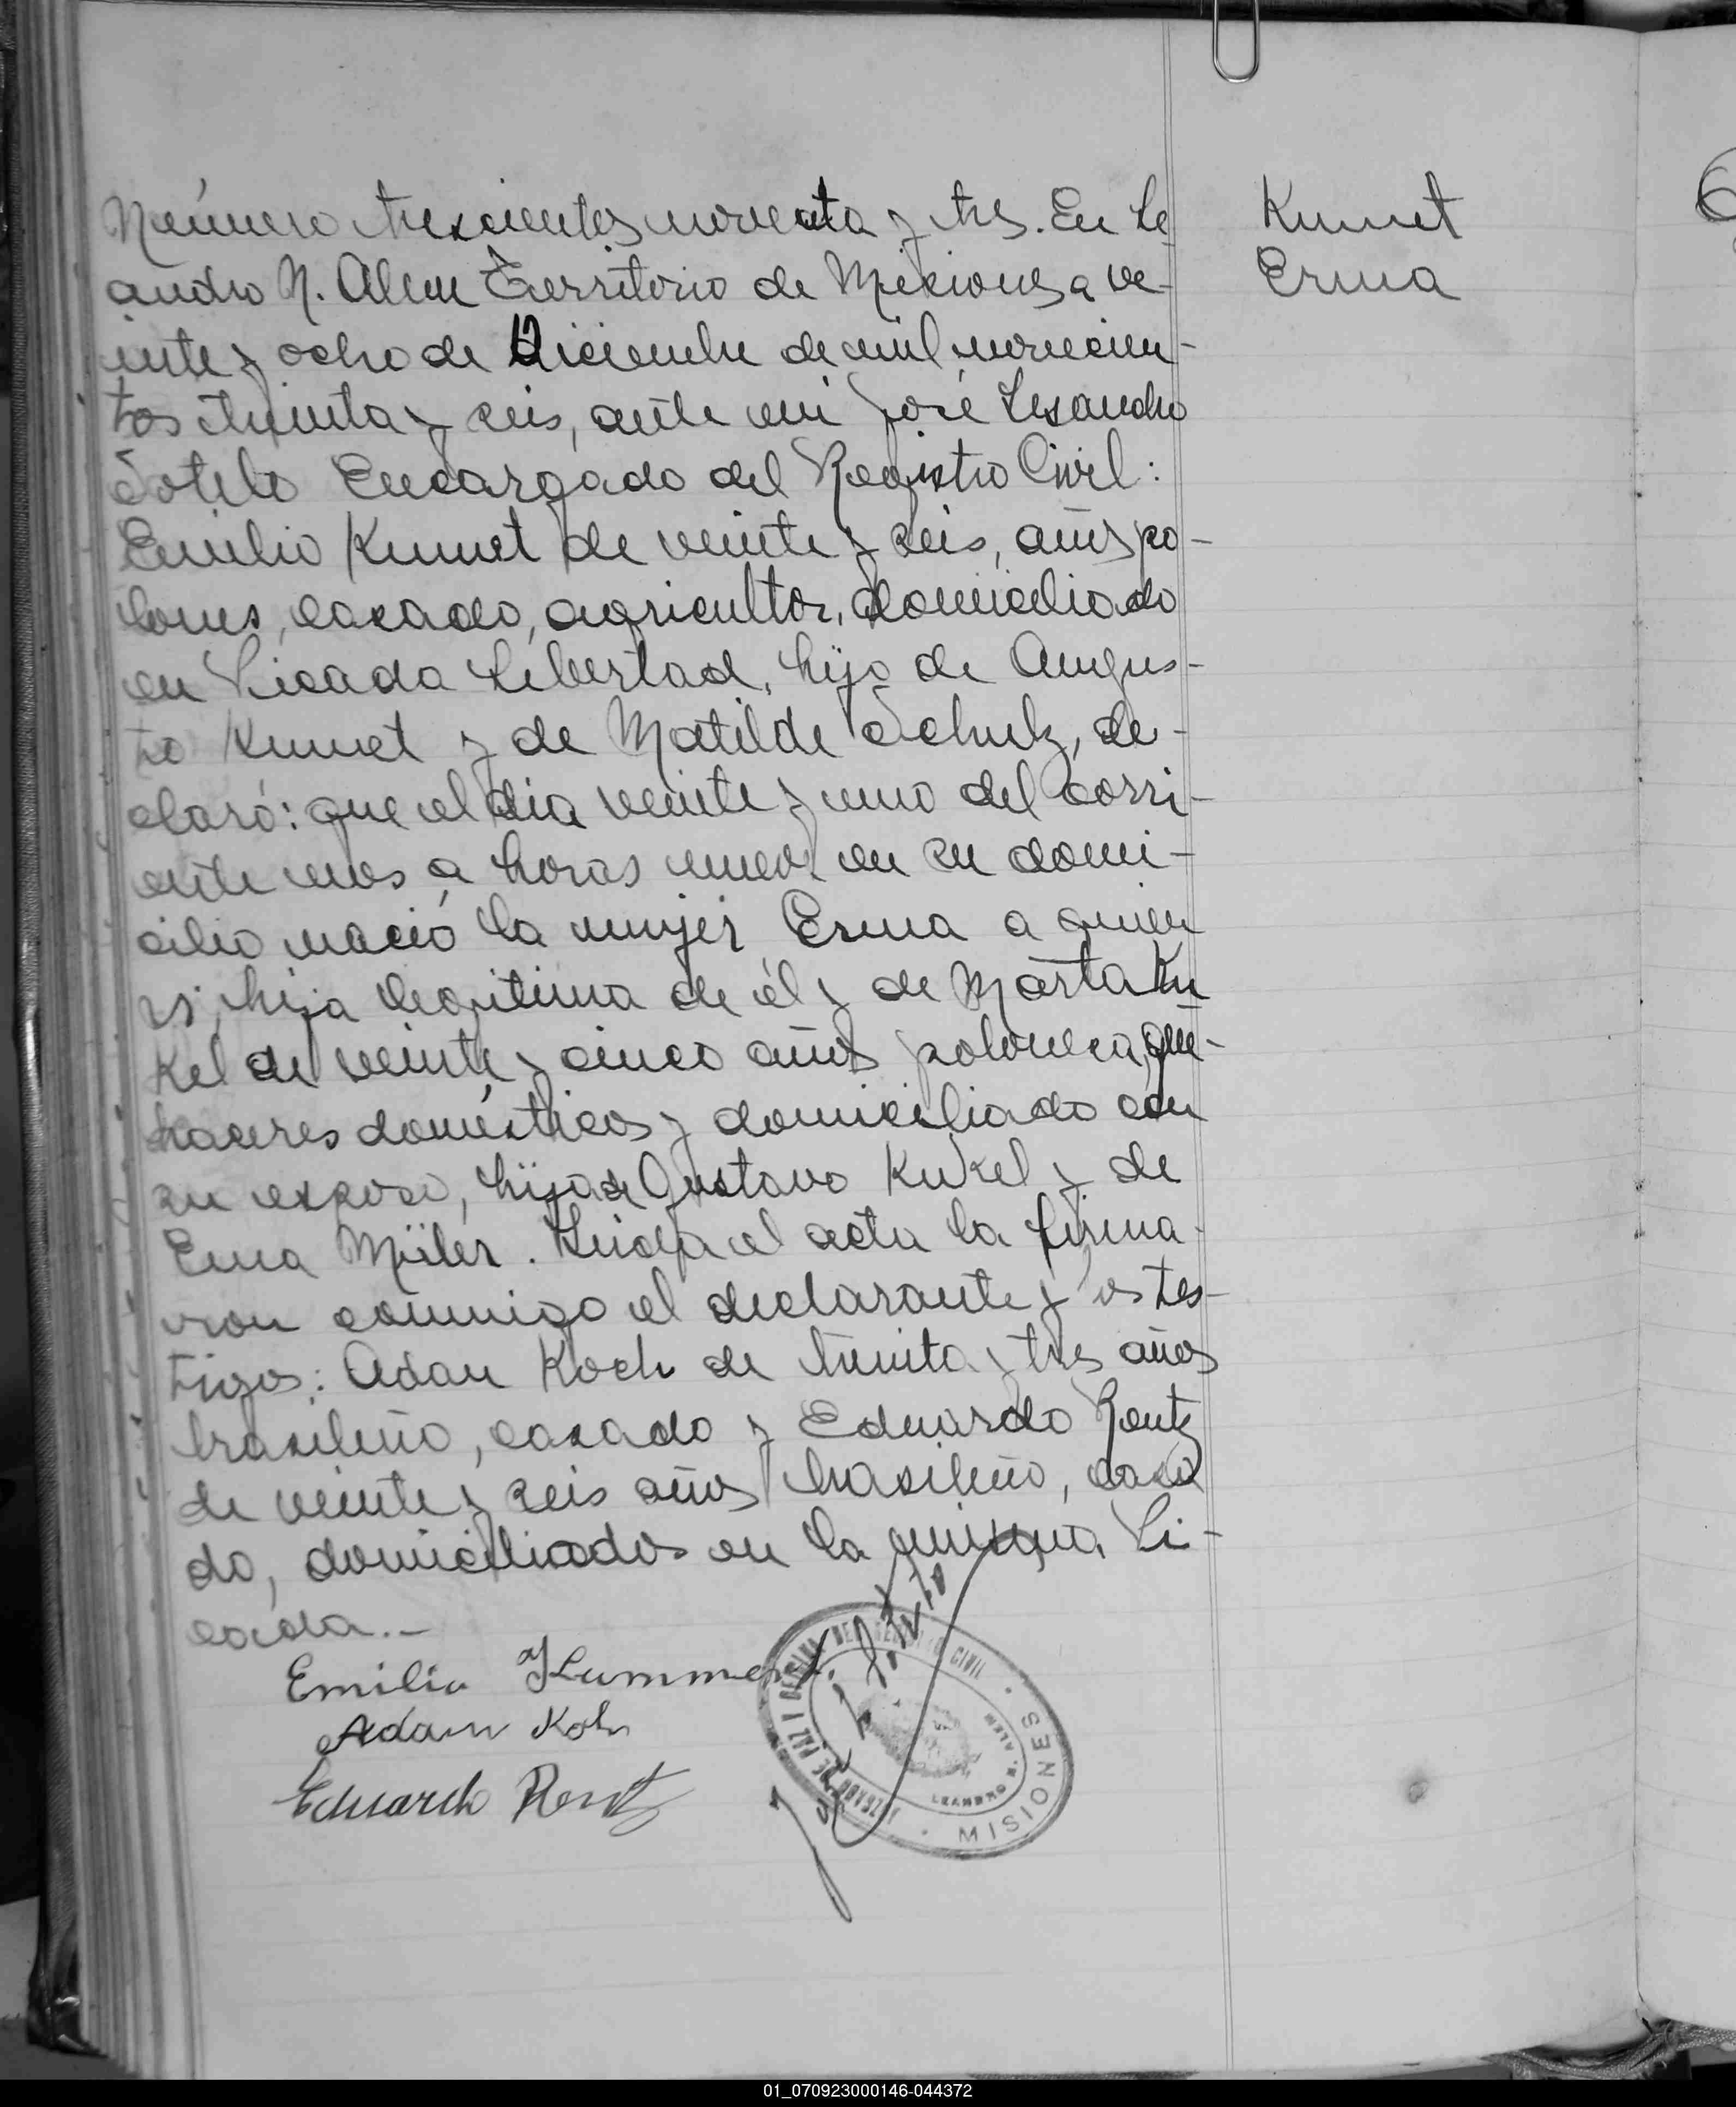 Número trescientos noventa y tres. En Le
andro N. Alem Territorio de Misiones a ve-
inte y ocho de Diciembre de mil novecien-
tos treinta y seis, ante mi José Lisandro
Sotelo Encargado del Registro Civil:
Emilio Kumet de veinte y seis, años po-
lones, casado, agricultor, domiciliado
en Picada Libertad, hijo de Augus-
to Kumet y de Matilde Schulz, de-
claró: que el dia veinte y uno del corri-
ente mes a horas nueve en su domi-
cilio nació la mujer Erma a quien
es hija legitima de él y de Marta Ku
kel de veinte y cinco años polonesa, que-
haceres domésticos y domiciliado con
su esposo, hija de Gustavo Kukel y de
Ema Müler. Leida el acta la firma-
ron conmigo el declarante y los tes-
tigos: Adan Koch de treinta y tres años
brasileño, casado y Eduardo Rentz
de veinte y seis años brasileño, casa
do, domiciliados en la misma Pi-
cada.-
Kumet
Erma
Emilio Kummert
Adam Koh
Eduardo Rentz
JUZGADO DE PAZ Y OFICINA DEL REGISTRO CIVIL
LEANDRO N. ALEM
MISIONES
01_070923000146-044372